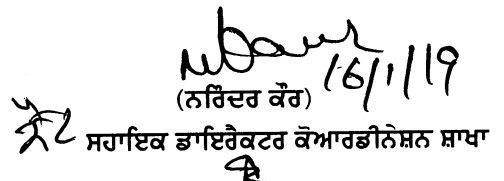 16/1/19
(ਨਰਿੰਦਰ ਕੌਰ)
ਸਹਾਇਕ ਡਾਇਰੈਕਟਰ ਕੋਆਰਡੀਨੇਸ਼ਨ ਸ਼ਾਖਾ